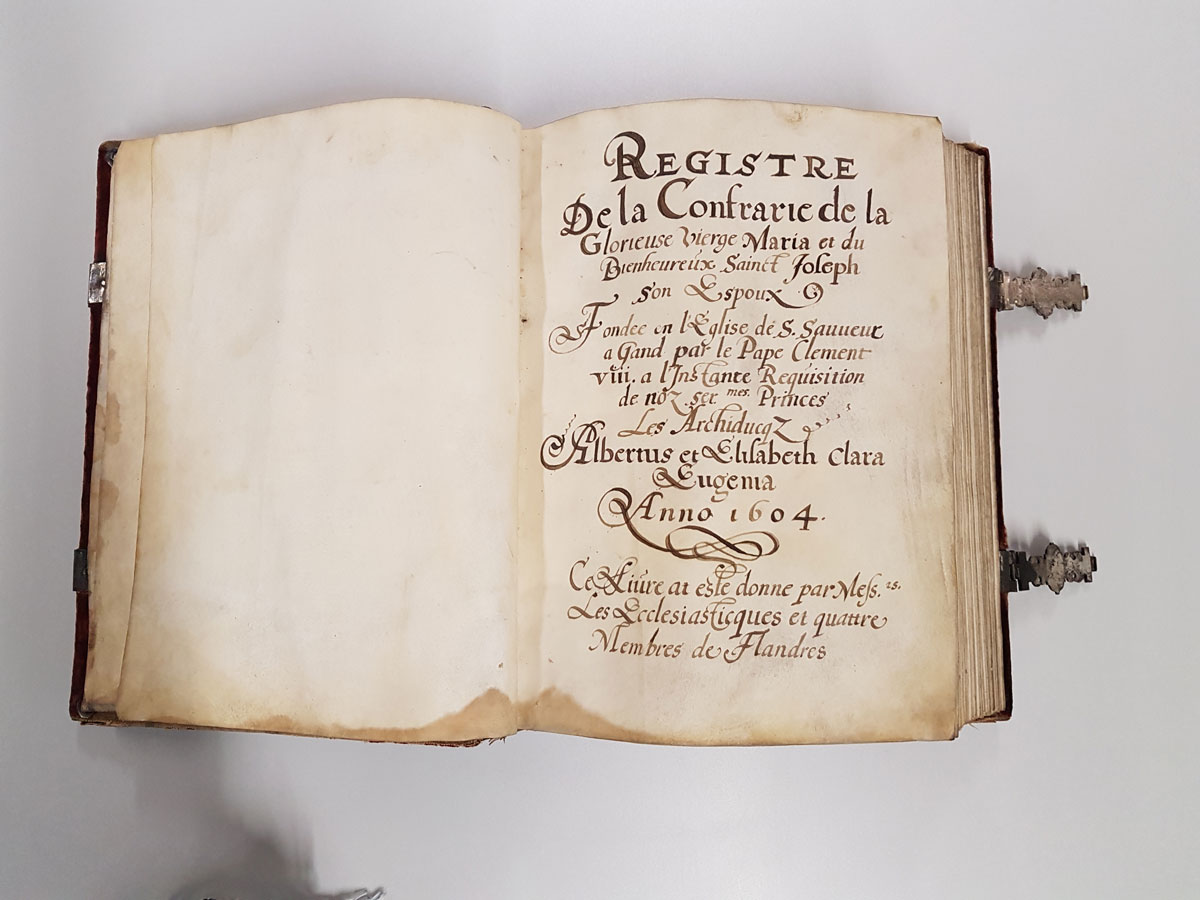 REGISTRE
De la Confrarie de la
Glorieuse Vierge Maria et du
Bienheureux Sainct Joseph
son Espoux
Fondee en l'Eglise de S. Sauueur
a Gand par le Pape Clement
VIII. a l'Instante Requisition
de noz ser.mes. Princes
Les Archiducqz
Albertus et Elisabeth Clara
Eugenia
Anno 1604.
Ce Liure at este donne par Mess.rs.
Les Ecclesiasticques et quattre
Membres de Flandres